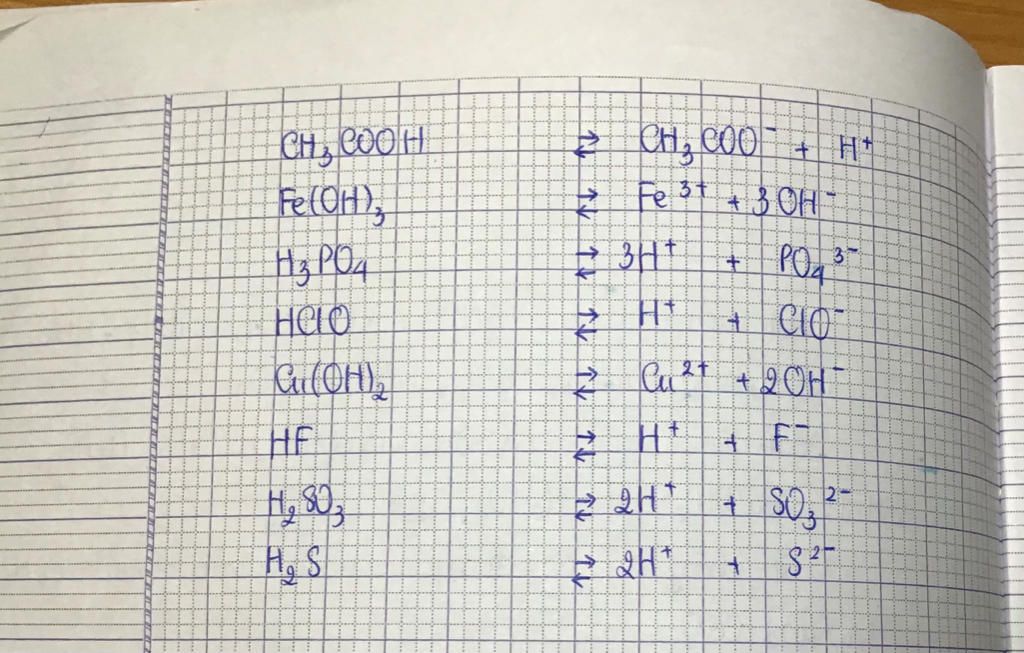 CH₃COOH ⇄ CH₃COO⁻ + H⁺
Fe(OH)₃ ⇄ Fe³⁺ + 3OH⁻
H₃PO₄ ⇄ 3H⁺ + PO₄³⁻
HClO ⇄ H⁺ + ClO⁻
Cu(OH)₂ ⇄ Cu²⁺ + 2OH⁻
HF ⇄ H⁺ + F⁻
H₂SO₃ ⇄ 2H⁺ + SO₃²⁻
H₂S ⇄ 2H⁺ + S²⁻